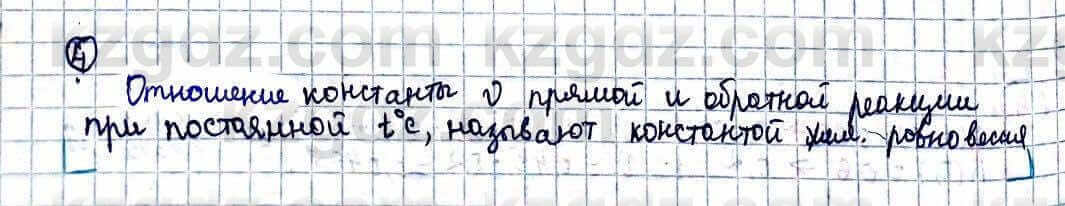 kzgdz.com kzgdz.com kzgdz.com
④
Отношение константы υ прямой и обратной реакции
при постоянной t°C, называют константой хим. ровновесия